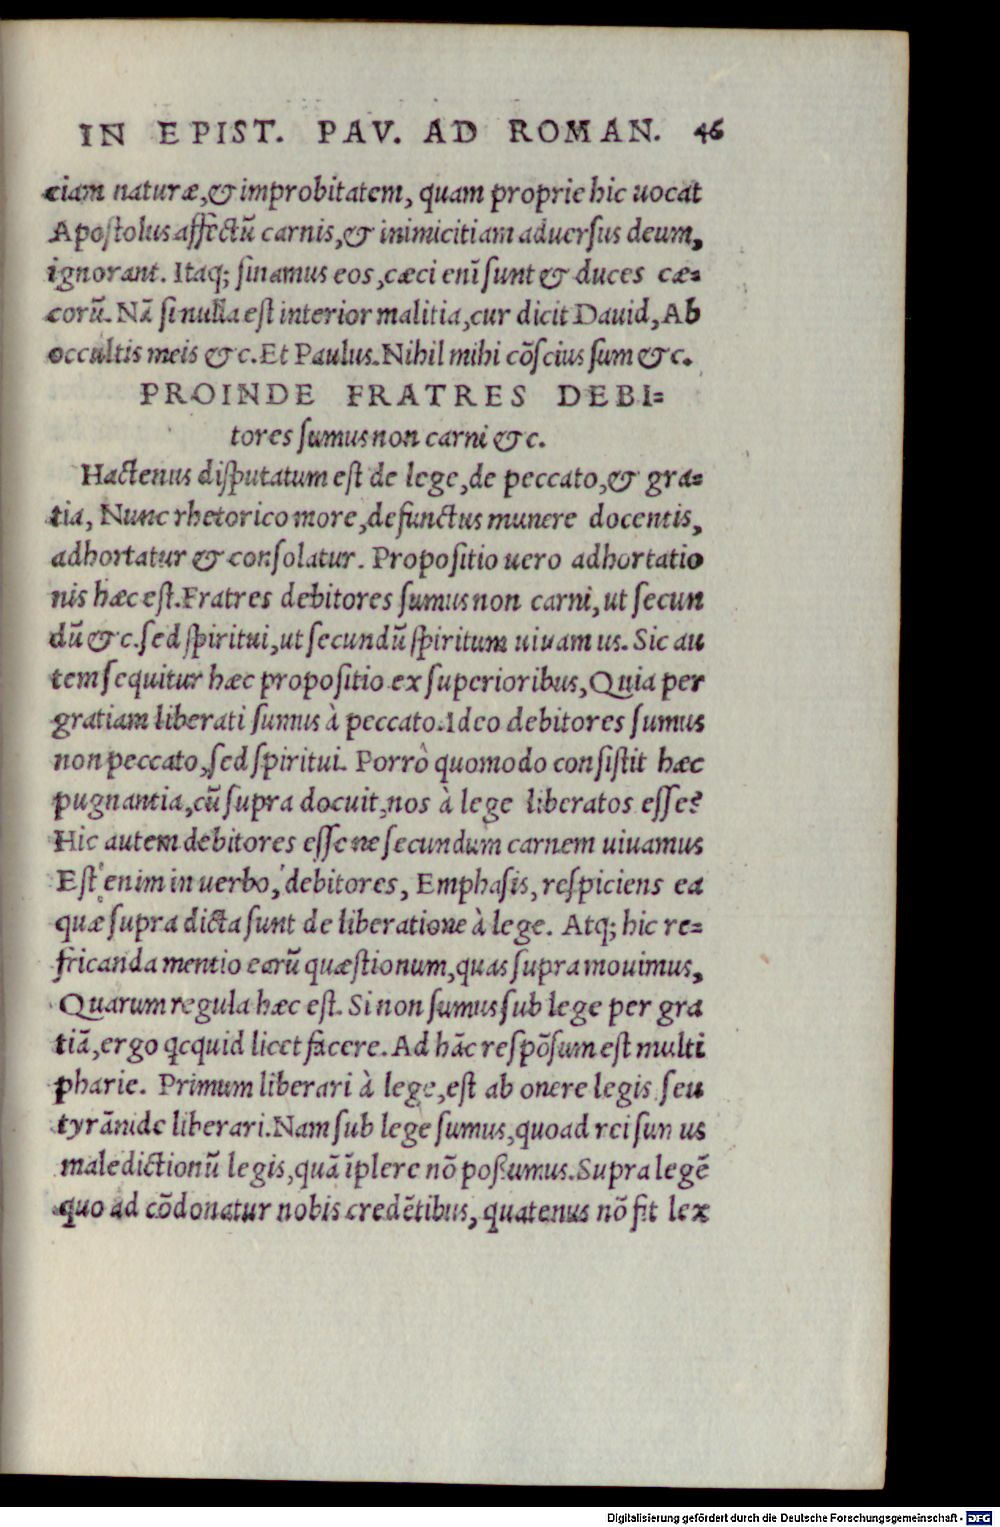 IN EPIST. PAV. AD ROMAN. 46
ciam naturæ,& improbitatem, quam proprie hic uocat
Apoſtolus affectũ carnis,& inimicitiam aduerſus deum,
ignorant. Itaq; ſinamus eos,cæci enĩ ſunt & duces cæ-
corũ. Nã ſi nulla eſt interior malitia,cur dicit Dauid,Ab
occultis meis &c. Et Paulus. Nihil mihi cõſcius ſum &c.
PROINDE FRATRES DEBI-
tores ſumus non carni &c.
Hactenus diſputatum eſt de lege,de peccato,& gra-
tia, Nunc rhetorico more,defunctus munere docentis,
adhortatur & conſolatur. Propoſitio uero adhortatio
nis hæc eſt.Fratres debitores ſumus non carni,ut ſecun
dũ &c.ſed ſpiritui,ut ſecundũ ſpiritum uiuamus. Sic au
tem ſequitur hæc propoſitio ex ſuperioribus,Quia per
gratiam liberati ſumus à peccato.Ideo debitores ſumus
non peccato,ſed ſpiritui. Porrò quomodo conſiſtit hæc
pugnantia,cũ ſupra docuit,nos à lege liberatos eſſe?
Hic autem debitores eſſe ne ſecundum carnem uiuamus
Eſt enim in uerbo, debitores, Emphaſis, reſpiciens ea
quæ ſupra dicta ſunt de liberatione à lege. Atq; hic re-
fricanda mentio earũ quæſtionum,quas ſupra mouimus,
Quarum regula hæc eſt. Si non ſumus ſub lege per gra
tiã,ergo qcquid licet facere. Ad hãc reſpõſum eſt multi
pharie. Primum liberari à lege,eſt ab onere legis ſeu
tyrãnide liberari.Nam ſub lege ſumus,quoad rei ſum us
maledictionũ legis,quã ĩplere nõ poſſumus.Supra legẽ
quo ad cõdonatur nobis credẽtibus, quatenus nõ fit lex
Digitalisierung gefördert durch die Deutsche Forschungsgemeinschaft - DFG